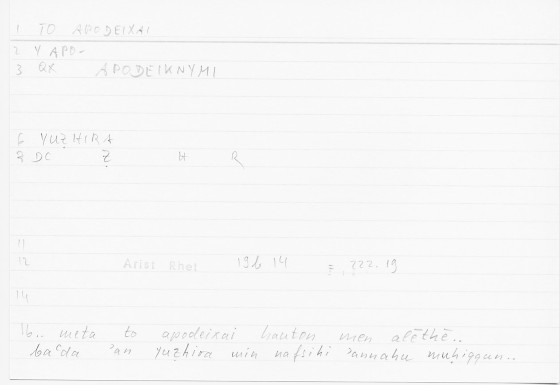 1 TO APODEIXAI
2 Y APO-
3 QX APODEIKNYMI
6 YUẒHIRA
DC Ẓ H R
11
12 Arist Rhet 19b 14 222.19
14
16.. meta to apodeixai hauton men alēthē..
baʿda ʾan yuẓhira min nafsihi ʾannahu muḥiqqun..